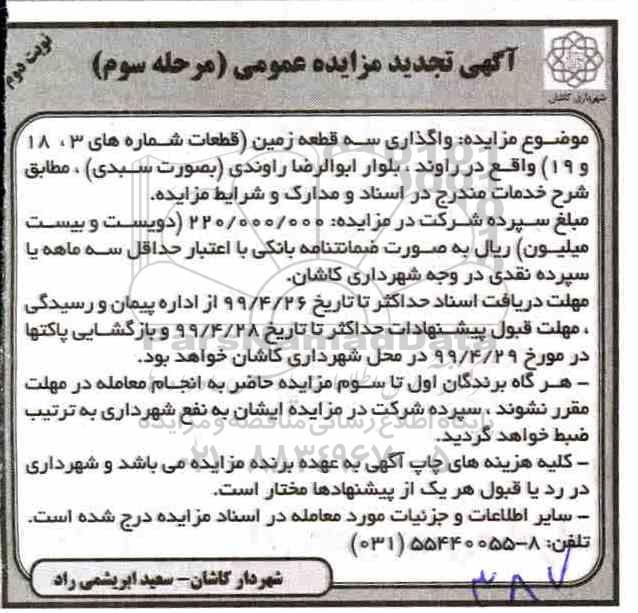 نوبت دوم
آگهی تجدید مزایده عمومی (مرحله سوم)
شهرداری کاشان
موضوع مزایده: واگذاری سه قطعه زمین (قطعات شماره های ۳، ۱۸
و ۱۹) واقع در راوند ، بلوار ابوالرضا راوندی (بصورت سبدی) ، مطابق
شرح خدمات مندرج در اسناد و مدارک و شرایط مزایده.
مبلغ سپرده شرکت در مزایده: ۲۲۰/۰۰۰/۰۰۰ (دویست و بیست
میلیون) ریال به صورت ضمانتنامه بانکی با اعتبار حداقل سه ماهه یا
سپرده نقدی در وجه شهرداری کاشان.
مهلت دریافت اسناد حداکثر تا تاریخ ۹۹/۴/۲۶ از اداره پیمان و رسیدگی
، مهلت قبول پیشنهادات حداکثر تا تاریخ ۹۹/۴/۲۸ و بازگشایی پاکتها
در مورخ ۹۹/۴/۲۹ در محل شهرداری کاشان خواهد بود.
- هر گاه برندگان اول تا سوم مزایده حاضر به انجام معامله در مهلت
مقرر نشوند ، سپرده شرکت در مزایده ایشان به نفع شهرداری به ترتیب
ضبط خواهد گردید.
- کلیه هزینه های چاپ آگهی به عهده برنده مزایده می باشد و شهرداری
در رد یا قبول هر یک از پیشنهادها مختار است.
- سایر اطلاعات و جزئیات مورد معامله در اسناد مزایده درج شده است.
تلفن: ۸-۵۵۴۴۰۰۵۵ (۰۳۱)
شهردار کاشان- سعید ابریشمی راد
۳۸۷
ParsNamadData
پایگاه اطلاع رسانی مناقصه و مزایده